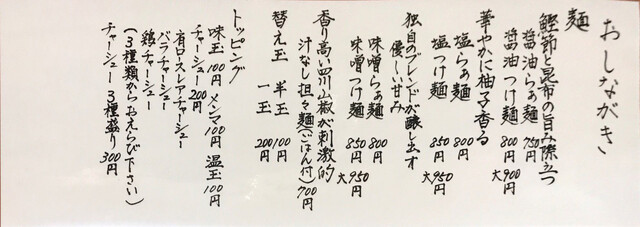 おしながき
麺
鰹節と昆布の旨み際立つ
醤油らぁ麺 750円
醤油つけ麺 800円 大900円
華やかに柚子香る
塩らぁ麺 800円
塩つけ麺 850円 大950円
独自のブレンドが醸し出す
優しい甘み
味噌らぁ麺 800円
味噌つけ麺 850円 大950円
香り高い四川山椒が刺激的
汁なし担々麺(ごはん付) 700円
替え玉 半玉 100円
一玉 200円
トッピング
味玉 100円 メンマ 100円 温玉 100円
チャーシュー 200円
肩ロースレアチャーシュー
バラチャーシュー
鶏チャーシュー
(3種類からおえらび下さい)
チャーシュー3種盛り 300円